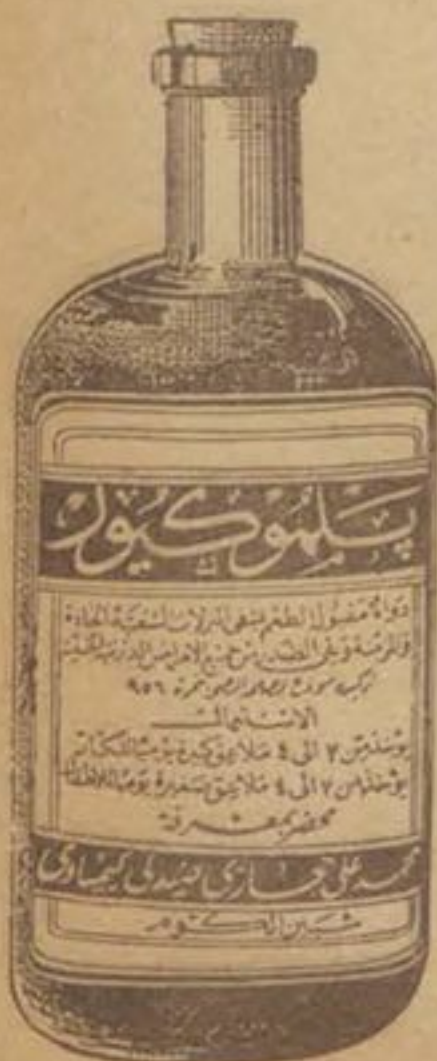 پلموكيور
دواء مقبول الطعم يشفى النزلات الشعبية الحادة
والمزمنة ويقى الصدر من جميع الأمراض
نمرة ٩٥٦
الاستعمال
يؤخذ من ٢ الى ٤ ملاعق كبيرة يوميا للكبار
يؤخذ من ٢ الى ٤ ملاعق صغيرة يوميا للأطفال
محضر بمعرفة
محمد على حجازى صيدلى كيماوى
شبين الكوم